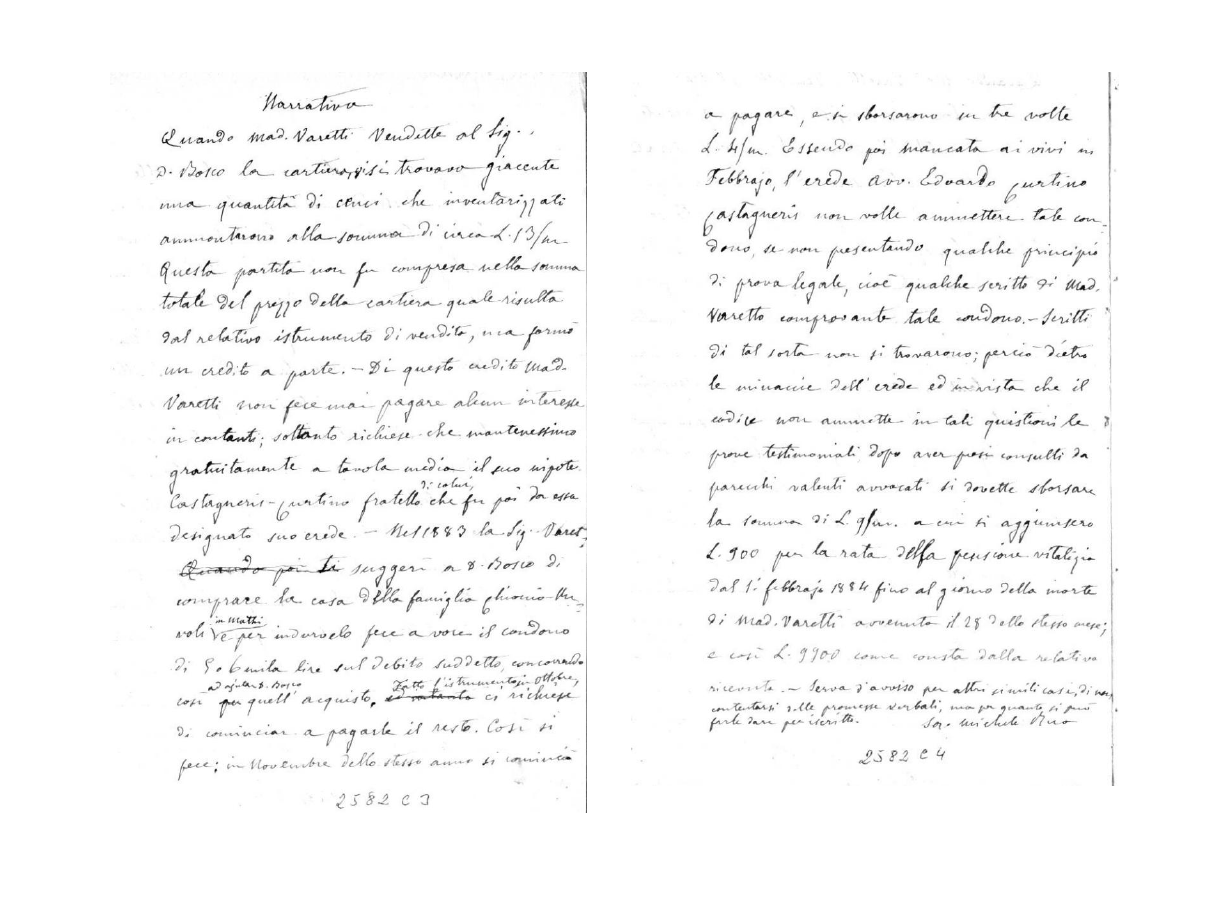 Narrativa
Quando Mad. Varetti vendette al Sig.
D. Bosco la cartiera, vi si trovava giacente
una quantità di cenci che inventarizzati
ammontarono alla somma di circa L. 13/m
Questa partita non fu compresa nella somma
totale del prezzo della cartiera quale risulta
dal relativo istrumento di vendita, ma formò
un credito a parte. - Di questo credito Mad.
Varetti non fece mai pagare alcun interesse
in contanti; soltanto richiese che mantenessimo
gratuitamente a tavola media il suo nipote
Castagneris-Curtino fratello di colui, che fu poi da essa
designato suo erede. - Nel 1883 la Sig. Varet-
Quando poi ti suggerì a D. Bosco di
comprare la casa della famiglia Chionio Nu-
voli in Mathi e per indurvelo fece a voce il condono
di 5 o 6 mila lire sul debito suddetto, concorrendo
così ad ajutar D. Bosco per quell'acquisto. Fatto l'istrumento in Ottobre, ed intanto ci richiese
di cominciar a pagarle il resto. Così si
fece; in Novembre dello stesso anno si cominciò
2582 C 3
a pagare, e si sborsarono in tre volte
L. 4/m. Essendo poi mancata ai vivi in
Febbrajo, l'erede Avv. Edoardo Curtino
Castagneris non volle ammettere tale con-
dono, se non presentando qualche principio
di prova legale, cioè qualche scritto di Mad.
Varetto comprovante tale condono. - Scritti
di tal sorta non si trovarono; perciò dietro
le minaccie dell'erede ed in vista che il
codice non ammette in tali quistioni le
prove testimoniali dopo aver presi consulti da
parecchi valenti avvocati si dovette sborsare
la somma di L. 9/m. a cui si aggiunsero
L. 900 per la rata della pensione vitalizia
dal 1º febbrajo 1884 fino al giorno della morte
di Mad. Varetti avvenuta il 28 dello stesso mese;
e così L. 9900 come consta dalla relativa
ricevuta. - Serva d'avviso per altri simili casi, di non
contentarsi delle promesse verbali, ma per quanto si può
farle dare per iscritto. Sac. Michele Rua
2582 C 4